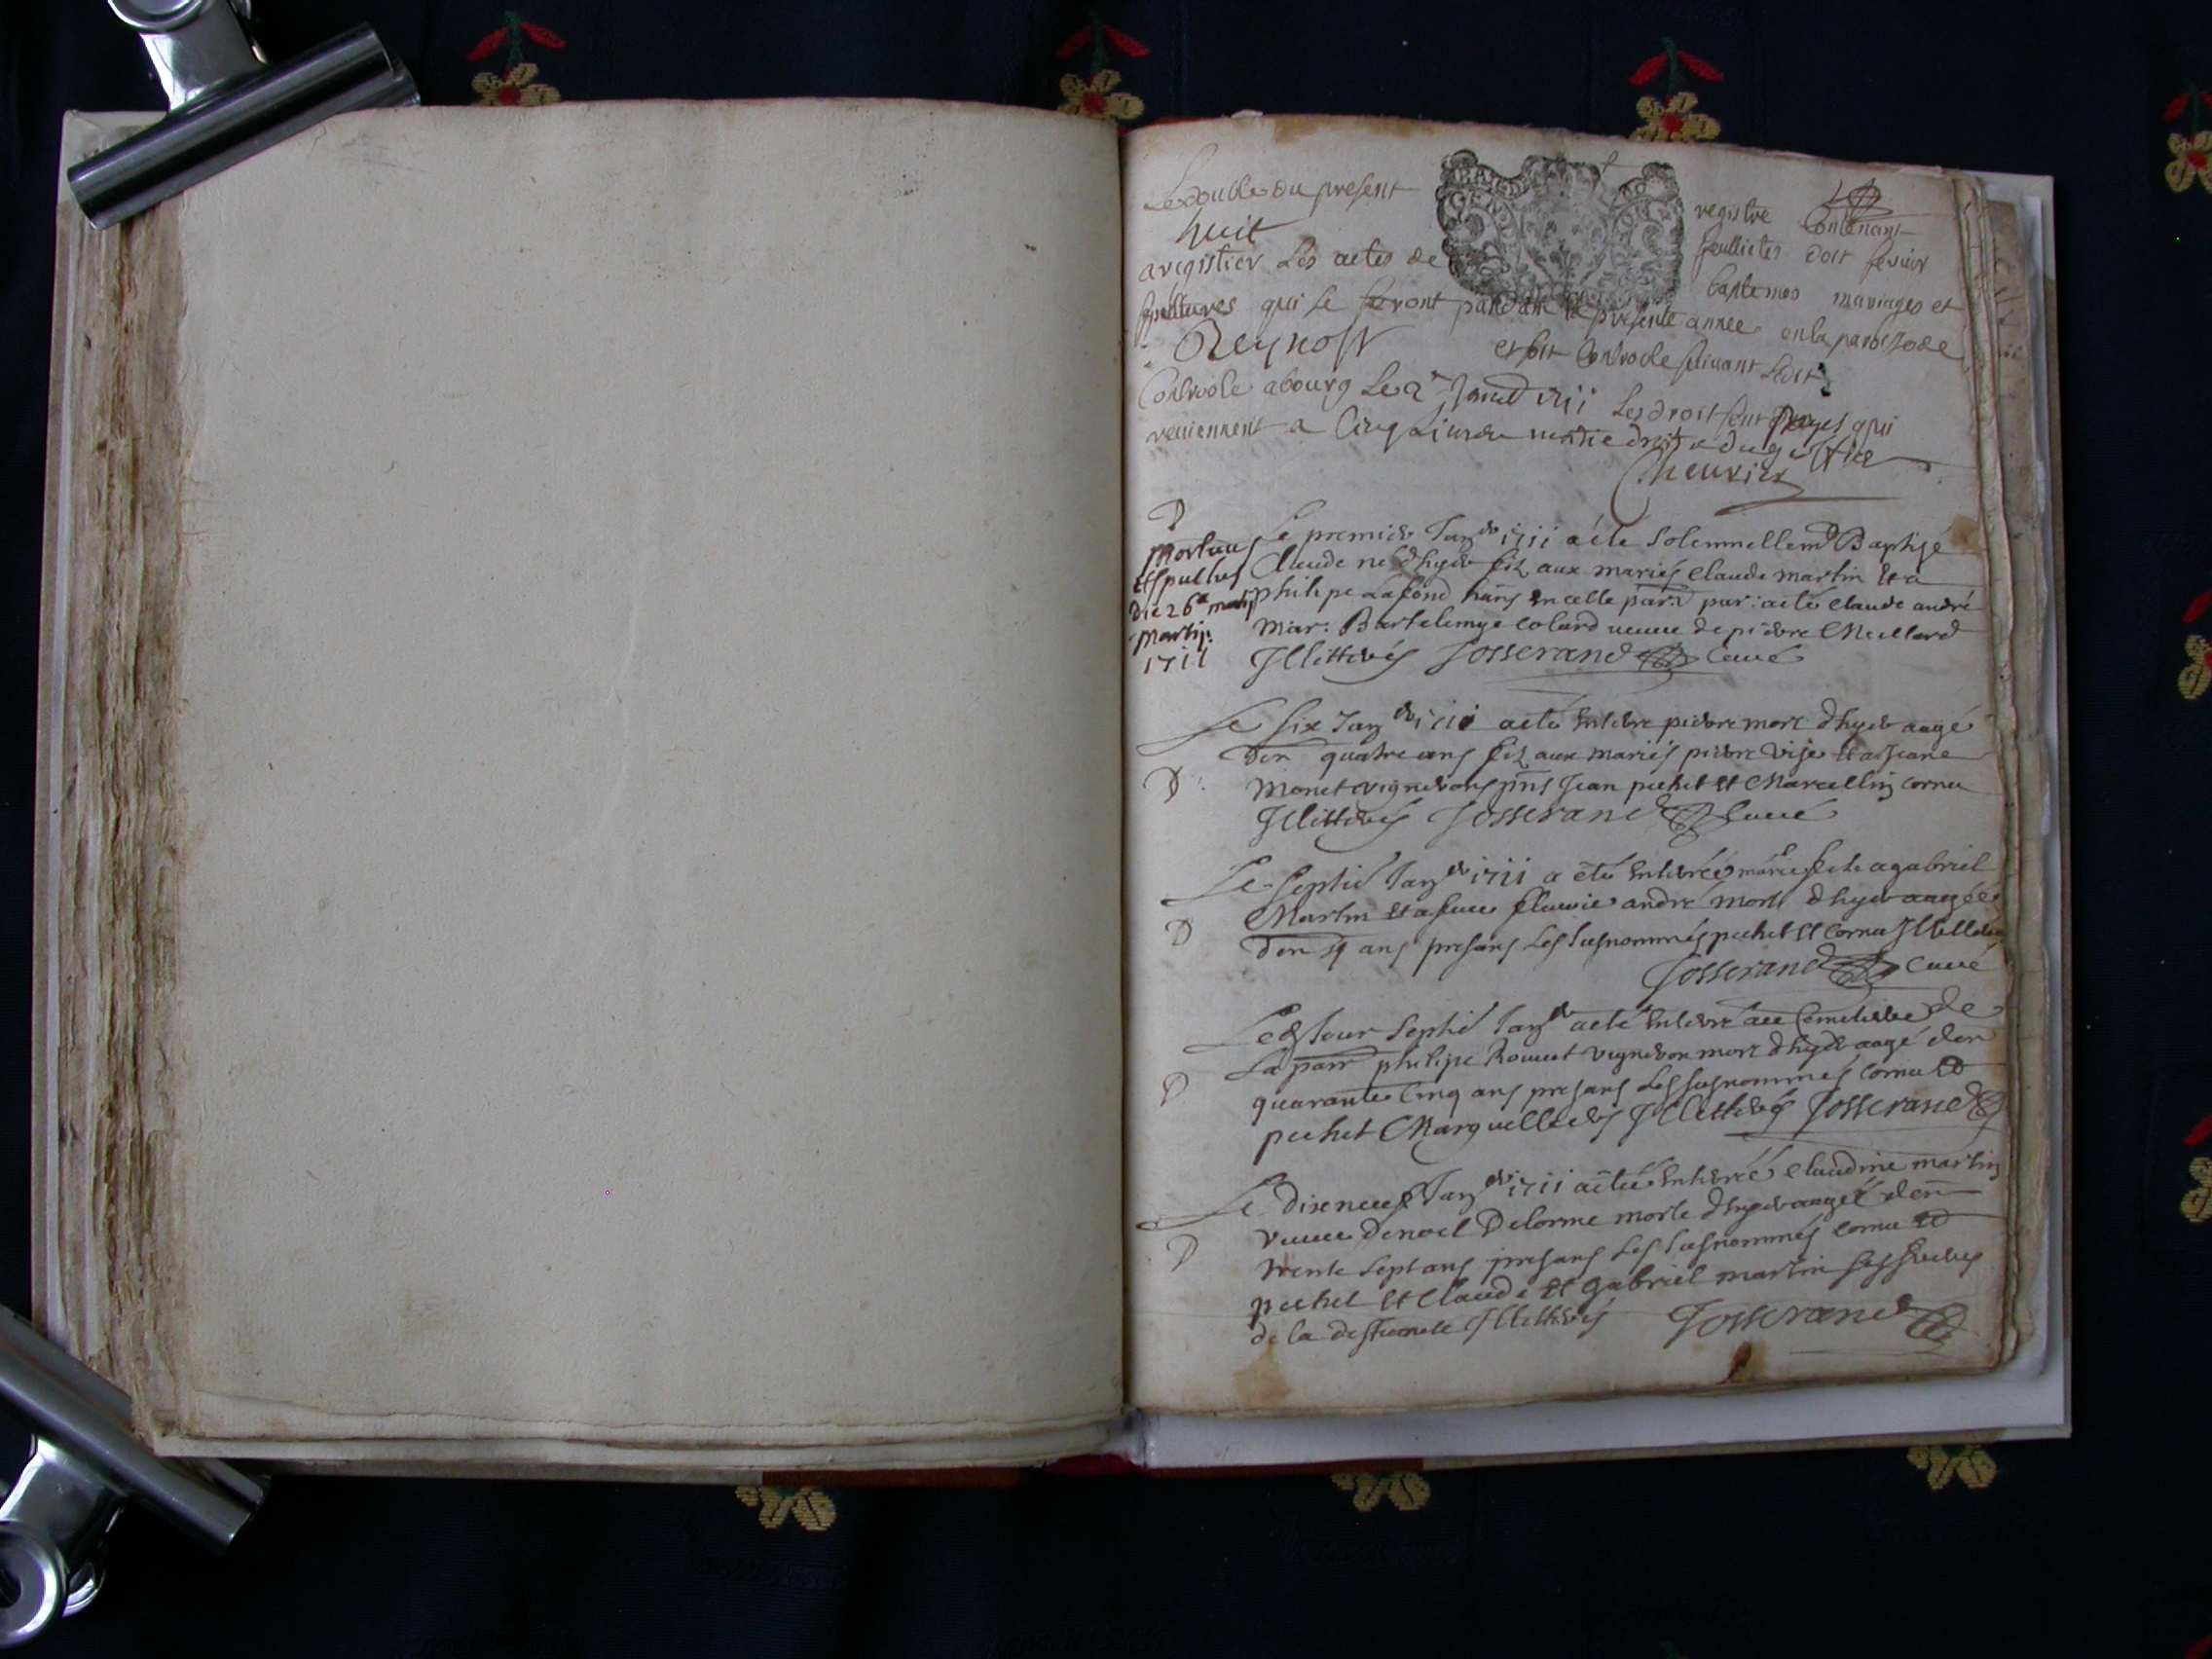 Le double du present registre Contenant
huit feullietes doit servir
a registrer Les actes de baptemes mariages et
sepultures qui se feront pandant la presente annee en la paroisse de
Reynost et soit Controle suivant Ledit
Controle a bourg Le 2e Janvd 1711 Les droit sont payes qui
reviennent a Cinq Livres
Chevrier
D
mortuus
et sepultus
die 26a
martij
1711
Le premier Janer 1711 a été solemnellemt Baptisé
Claude né d'hyer filz aux mariés Claude martin et a
philipe Lafond par: a été Claude andré
mar: Bartelemye Colard veuve de pierre Meillard
Illitterés Josserand Curé
Le six Janer 1711 a été enterré pierre mort d'hyer aagé
D'en quatre ans filz aux mariés pierre Vise et a Jeane
D
Monet vignerons pnts Jean pechet et Marcellin Cornu
Illitterés Josserand Curé
Le septié Janer 1711 a été enterrée marie fille a gabriel
Martin et a feue fleurie andré morte d'hyer aagée
D
D'en ans presans Les susnommés pechet et Cornu
Josserand Curé
Led Jour septié Janer a été enterré au Cemetiere de
La parr philipe Rouvet vigneron mort d'hyer aagé d'en
D
quarante Cinq ans presans Les susnommés Cornu et
pechet Marguelliers Illitterés Josserand
Le dixneuf Janer 1711 a été enterrée Claudine martin
veuve de noel Delorme morte d'hyer aagée d'en
D
trente sept ans presans Les susnommés Cornu et
pechet et Claude et gabriel martin ses freres
de la deffuncte Illitterés Josserand